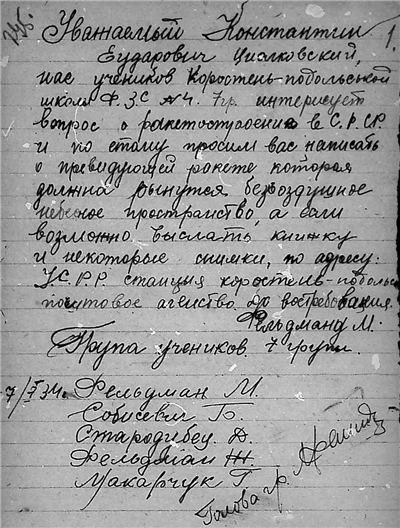 Уважаемый Константин 1.
Еударович Циалковский,
нас учеников Коростень-подольской
школи Ф.З.С №4. 7гр. интересует
вопрос о ракетостроение в С.Р.СР.
и по етому просим вас написать
о превидующей рокете которая
должна рынутся безвоздушное
небесное пространство, а если
возможно, выслать книжку
и некоторые снимки, по адресу:
У.С.Р.Р. станция коростень-подольск
почтовое агенство, до востребования.
Фельдману М.
Група учеников 7 групи.
7/I 34г. Фельдман М.
Собисевич Б.
Стародубец Д.
Фельдман Ж.
Макарчук Г.
Голова гр.